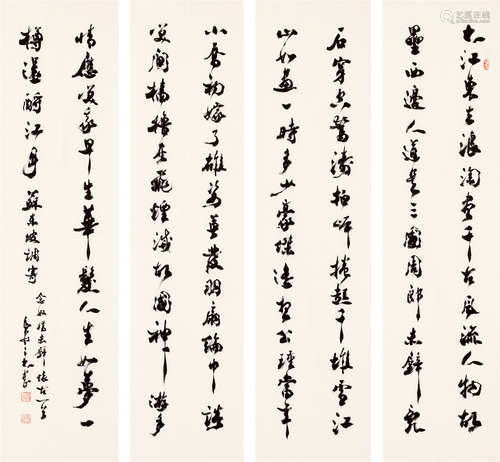 大江東去浪淘尽千古風流人物故
壘西邊人道是三國周郎赤壁亂
石穿空驚濤拍岸捲起千堆雪江
山如畫一時多少豪傑遙想公瑾當年
小喬初嫁了雄姿英發羽扇綸巾談
笑間檣櫓灰飛煙滅故國神遊多
情應笑我早生華髮人生如夢一
樽還酹江月 蘇東坡詞寄
念奴嬌赤壁懷古一首